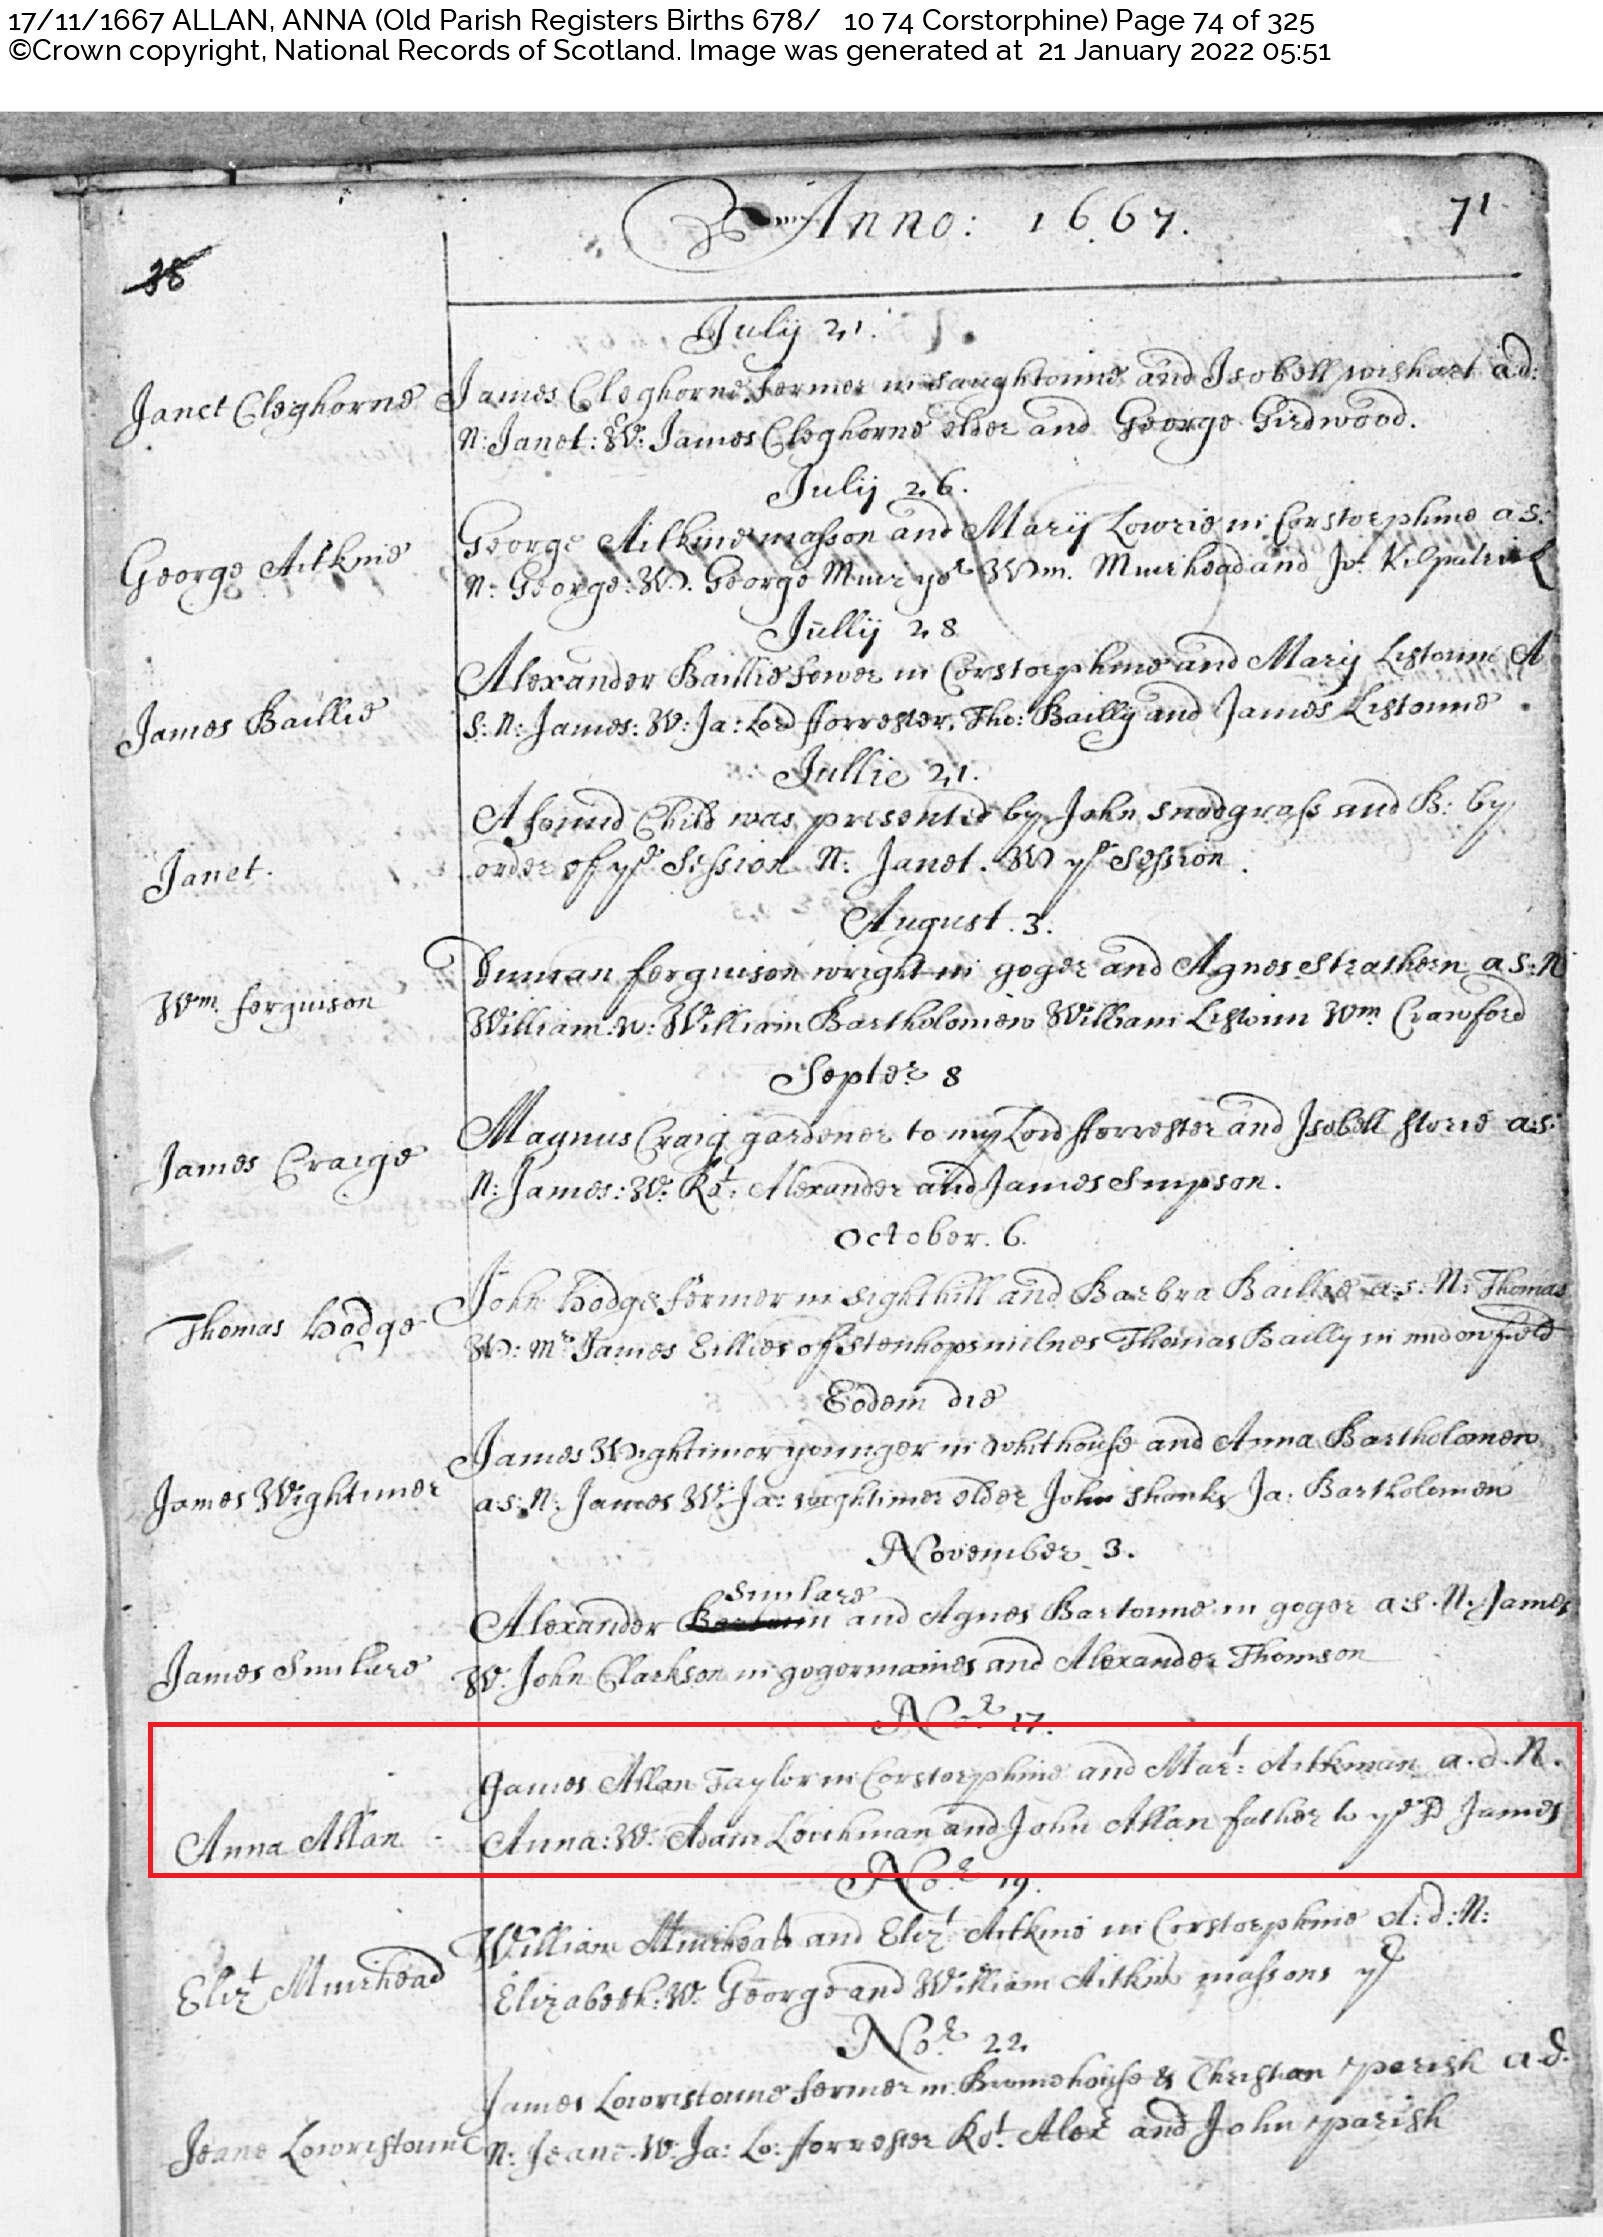 17/11/1667 ALLAN, ANNA (Old Parish Registers Births 678/ 10 74 Corstorphine) Page 74 of 325
©Crown copyright, National Records of Scotland. Image was generated at 21 January 2022 05:51
Anno: 1667. 71
38
July 21.
Janet Cleghorne James Cleghorne fermer in saughtoune and Isobell wishart a d:
N: Janet: W: James Cleghorne elder and George Girdwood.
Julij 26.
George Aitkine George Aitkine masson and Marij Lowrie in Corstorphine a s:
N: George: W. George Muir yor Wm. Muirhead and Jo: Kilpatrick
Jullij 28
James Baillie Alexander Baillie fewer in Corstorphine and Marij Listoune A
s: N: James: W: Ja: Lord fforrester, Tho: Bailly and James Listoune
Jullie 21.
A found Child was presented by John snodgrass and B: by
Janet. order of ye Session N: Janet. W ye Session.
August. 3.
Wm. ferguison Duncan ferguison wright in goger and Agnes Strathern a s: N
William: w: William Bartholomew William Listoun Wm Crawford
Septer 8
James Craige Magnus Craig gardener to my Lord fforrester and Isobell storie a:s:
N: James: W: Rot: Alexander and James Simpson.
October. 6.
Thomas Hodge John Hodge fermer in sighthill and Barbra Baillie a:s: N: Thomas
W: Mr James Eillies of Stenhopsmilnes Thomas Bailly in
Eodem die
James Wightimer James Wightimor younger in whithouse and Anna Bartholomew
a s: N: James W: Ja: wightimer elder John shanks Ja: Bartholomew
November 3.
Simlare
Alexander and Agnes Bartoune in goger a:s. N: James
James Simlare W. John Clarkson in gogermaines and Alexander Thomson
Nor 17.
James Allan Taylor in Corstorphine and Mart: Aitkman a.d. N.
Anna Allan Anna: W: Adam Leishman and John Allan father to ye sd James
Nor 19.
William Muirhead and Elizt Aitkine in Corstorphine A: d: N:
Elizt Muirhead Elizabeth: W: George and William Aitkine massons yr
Nor 22
James Lowristoune fermer in Bromehouse & Christian parish a d:
Jeane Lowristoune N: Jeane. W: Ja: Lo: fforrester Rot. Alexr and John parish